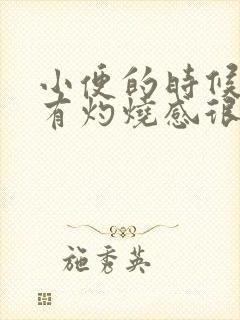 小便的時候
有灼燒感很
施秀英